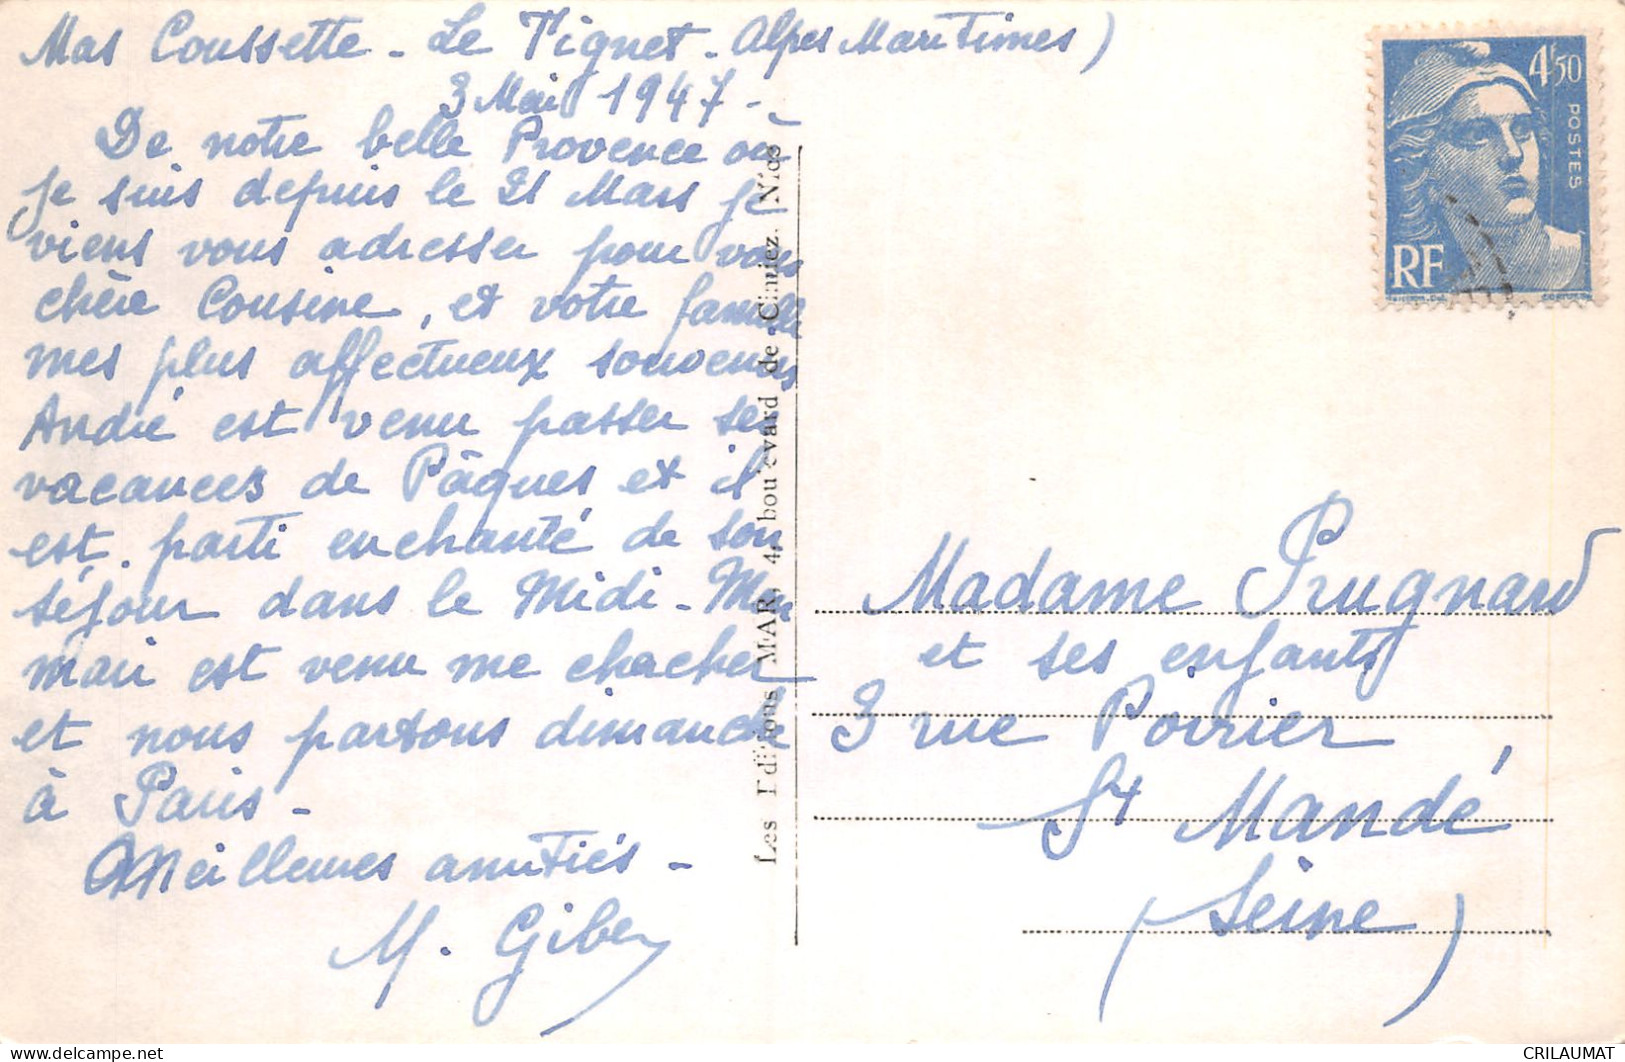 Mas Coussette - Le Tignet - Alpes Maritimes)
3 Mai 1947 -
De notre belle Provence où
je suis depuis le 21 Mars je
viens vous adresser pour vous
chère Cousine, et votre famille
mes plus affectueux souvenirs
André est venu passer ses
vacances de Pâques et il
est parti enchanté de son
séjour dans le Midi - Mon
mari est venu me chercher
et nous partons dimanche
à Paris -
Meilleures amitiés -
M. Gibey
Les Editions MAR, 4, boulevard de Cimiez. Nice
4f50
POSTES
RF
Madame Prugnard
et ses enfants
3 rue Poirier
St Mandé
(Seine)
CRILAUMAT